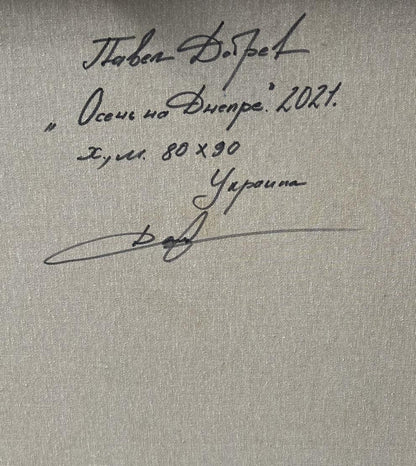 Павел Добрев
„Осень на Днепре." 2021.
х, м. 80 х 90
Украина